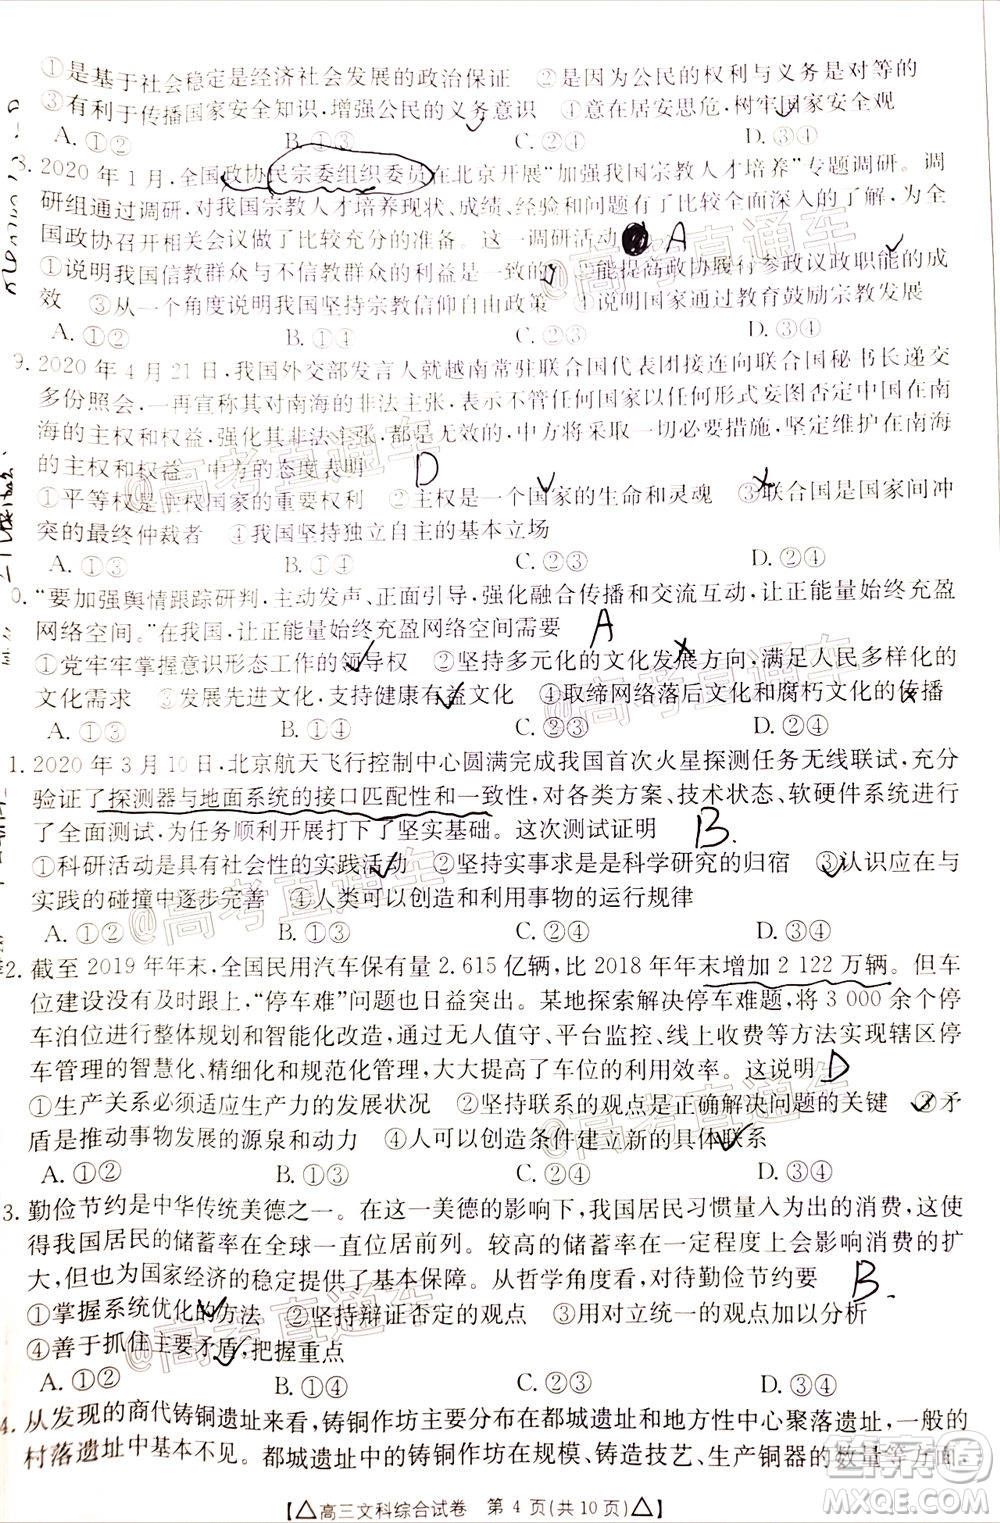 ①是基于社会稳定是经济社会发展的政治保证 ②是因为公民的权利与义务是对等的
③有利于传播国家安全知识,增强公民的义务意识 ④意在居安思危,树牢国家安全观
A. ①② B. ①③ C. ②④ D. ③④
8. 2020年1月,全国政协民宗委组织委员在北京开展“加强我国宗教人才培养”专题调研。调
研组通过调研,对我国宗教人才培养现状、成绩、经验和问题等有了比较全面深入的了解,为全
国政协召开相关会议做了比较充分的准备。这一调研活动 A
①说明我国信教群众与不信教群众的利益是一致的 ②能提高政协履行参政议政职能的成
效 ③从一个角度说明我国坚持宗教信仰自由政策 ④说明国家通过教育鼓励宗教发展
A. ①② B. ①④ C. ②③ D. ③④
9. 2020年4月21日,我国外交部发言人就越南常驻联合国代表团接连向联合国秘书长递交
多份照会,一再宣称其对南海的非法主张,表示不管任何国家以任何形式妄图否定中国在南
海的主权和权益,强化其非法主张,都是无效的,中方将采取一切必要措施,坚定维护在南海
的主权和权益。中方的态度表明 D
①平等权是主权国家的重要权利 ②主权是一个国家的生命和灵魂 ③联合国是国家间冲
突的最终仲裁者 ④我国坚持独立自主的基本立场
A. ①② B. ①③ C. ②③ D. ②④
0. “要加强舆情跟踪研判,主动发声、正面引导,强化融合传播和交流互动,让正能量始终充盈
网络空间。”在我国,让正能量始终充盈网络空间需要 A
①党牢牢掌握意识形态工作的领导权 ②坚持多元化的文化发展方向,满足人民多样化的
文化需求 ③发展先进文化,支持健康有益文化 ④取缔网络落后文化和腐朽文化的传播
A. ①③ B. ①④ C. ②③ D. ②④
1. 2020年3月10日,北京航天飞行控制中心圆满完成我国首次火星探测任务无线联试,充分
验证了探测器与地面系统的接口匹配性和一致性,对各类方案、技术状态、软硬件系统进行
了全面测试,为任务顺利开展打下了坚实基础。这次测试证明 B.
①科研活动是具有社会性的实践活动 ②坚持实事求是是科学研究的归宿 ③认识应在与
实践的碰撞中逐步完善 ④人类可以创造和利用事物的运行规律
A. ①② B. ①③ C. ②④ D. ③④
2. 截至2019年年末,全国民用汽车保有量2.615亿辆,比2018年年末增加2 122万辆。但车
位建设没有及时跟上,“停车难”问题也日益突出。某地探索解决停车难题,将3 000余个停
车泊位进行整体规划和智能化改造,通过无人值守、平台监控、线上收费等方法实现辖区停
车管理的智慧化、精细化和规范化管理,大大提高了车位的利用效率。这说明 D
①生产关系必须适应生产力的发展状况 ②坚持联系的观点是正确解决问题的关键 ③矛
盾是推动事物发展的源泉和动力 ④人可以创造条件建立新的具体联系
A. ①② B. ①③ C. ②④ D. ③④
3. 勤俭节约是中华传统美德之一。在这一美德的影响下,我国居民习惯量入为出的消费,这使
得我国居民的储蓄率在全球一直位居前列。较高的储蓄率在一定程度上会影响消费的扩
大,但也为国家经济的稳定提供了基本保障。从哲学角度看,对待勤俭节约要 B.
①掌握系统优化的方法 ②坚持辩证否定的观点 ③用对立统一的观点加以分析
④善于抓住主要矛盾,把握重点
A. ①② B. ①③ C. ②④ D. ③④
4. 从发现的商代铸铜遗址来看,铸铜作坊主要分布在都城遗址和地方性中心聚落遗址,一般的
村落遗址中基本不见。都城遗址中的铸铜作坊在规模、铸造技艺、生产铜器的数量等方面,
【△高三文科综合试卷 第4页(共10页)△】
@高考直通车
答案圈
MXEQE.COM